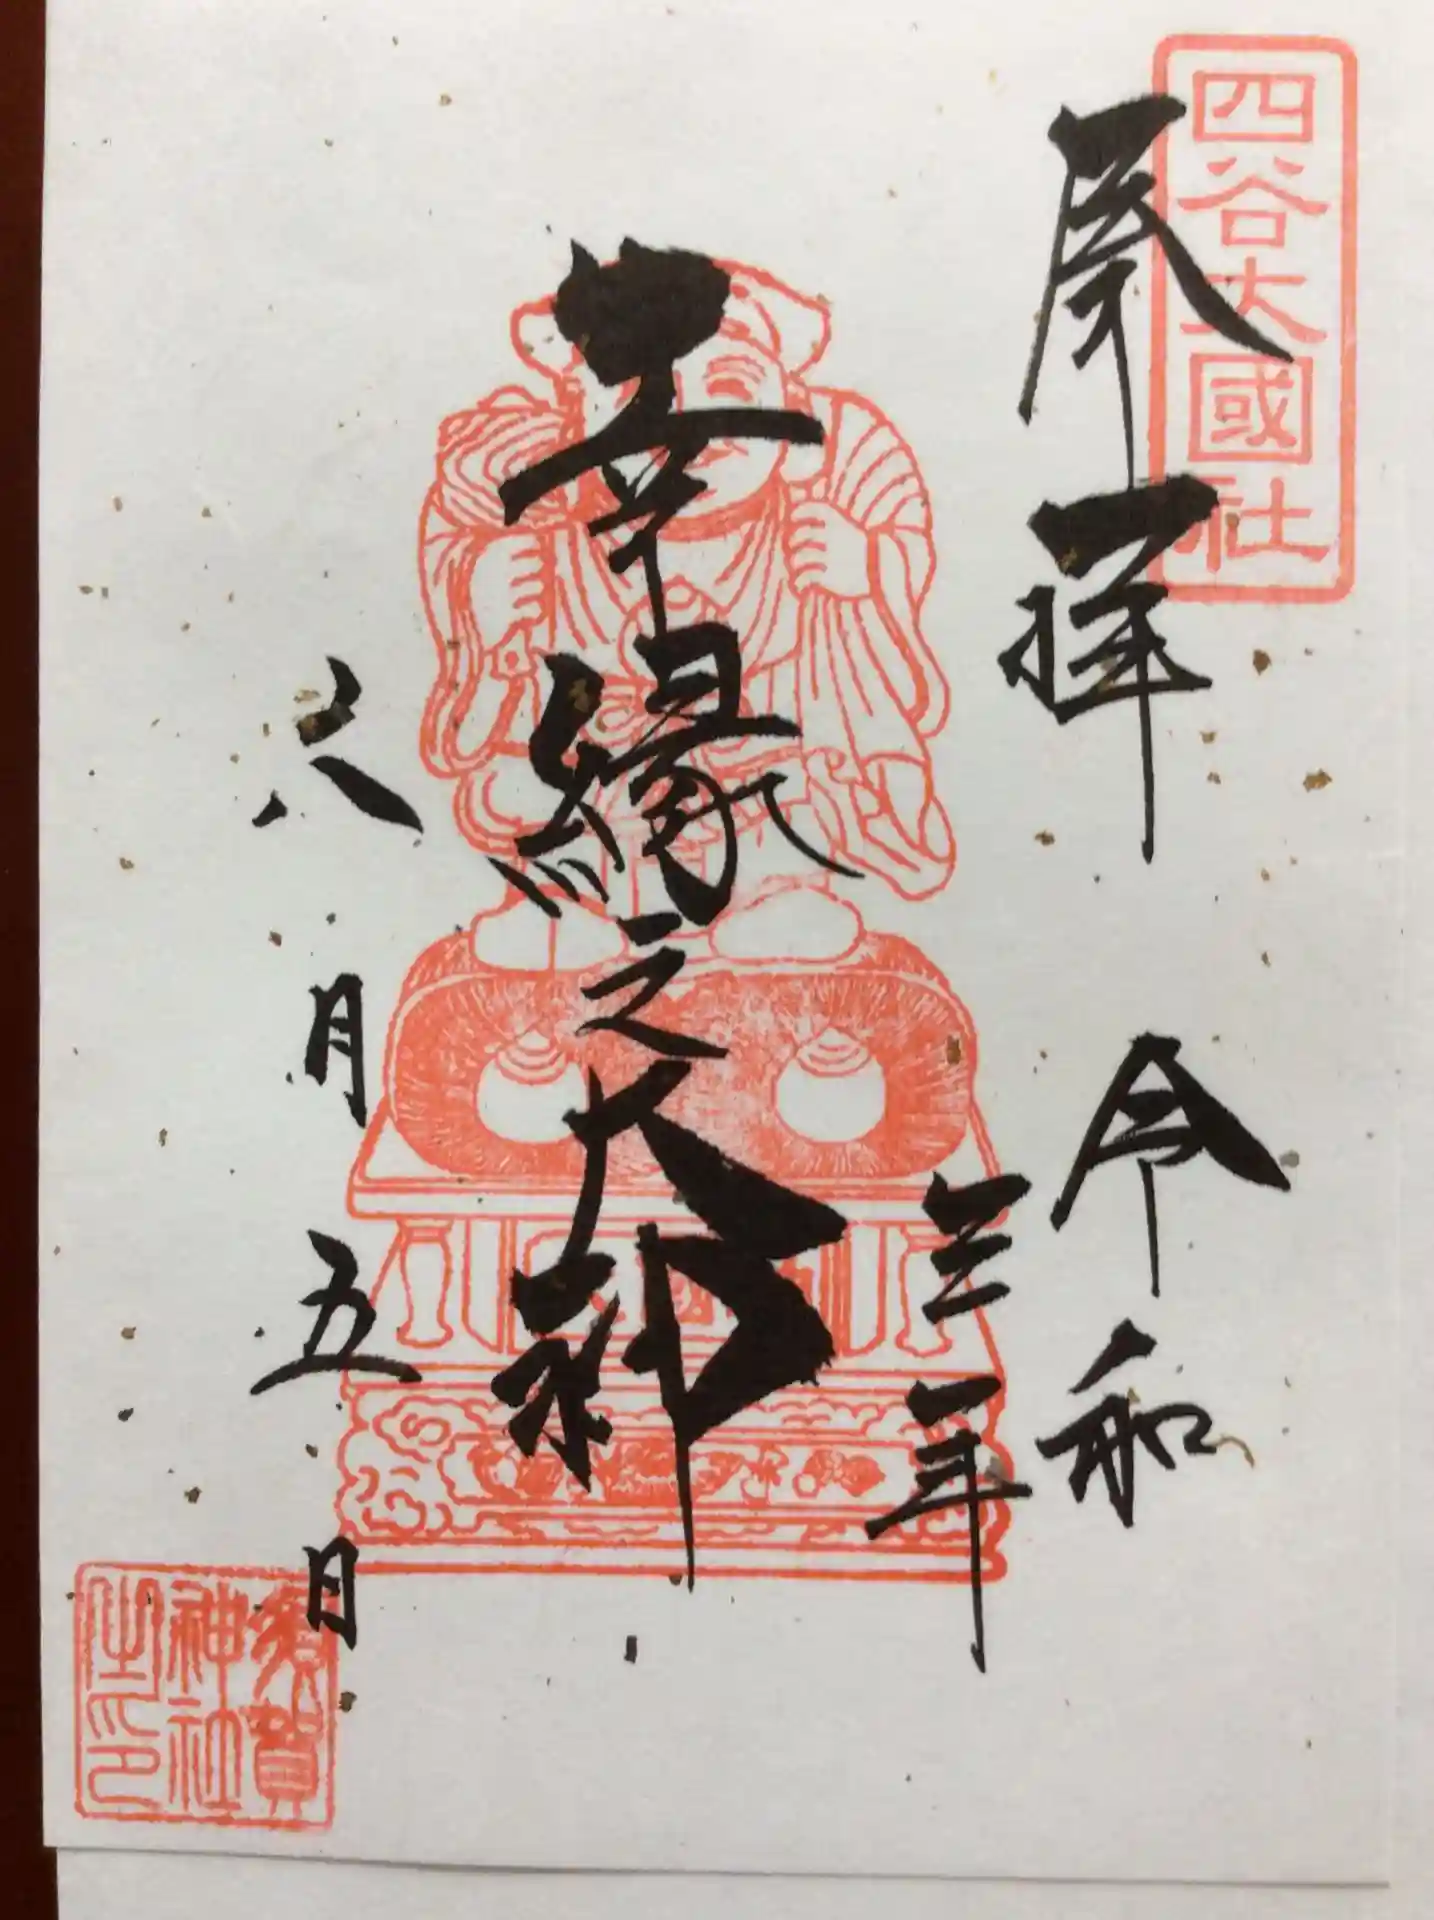 四谷大國社
奉拝
令和
三年
幸縁之大神
六月
五日
須賀
神社
之印